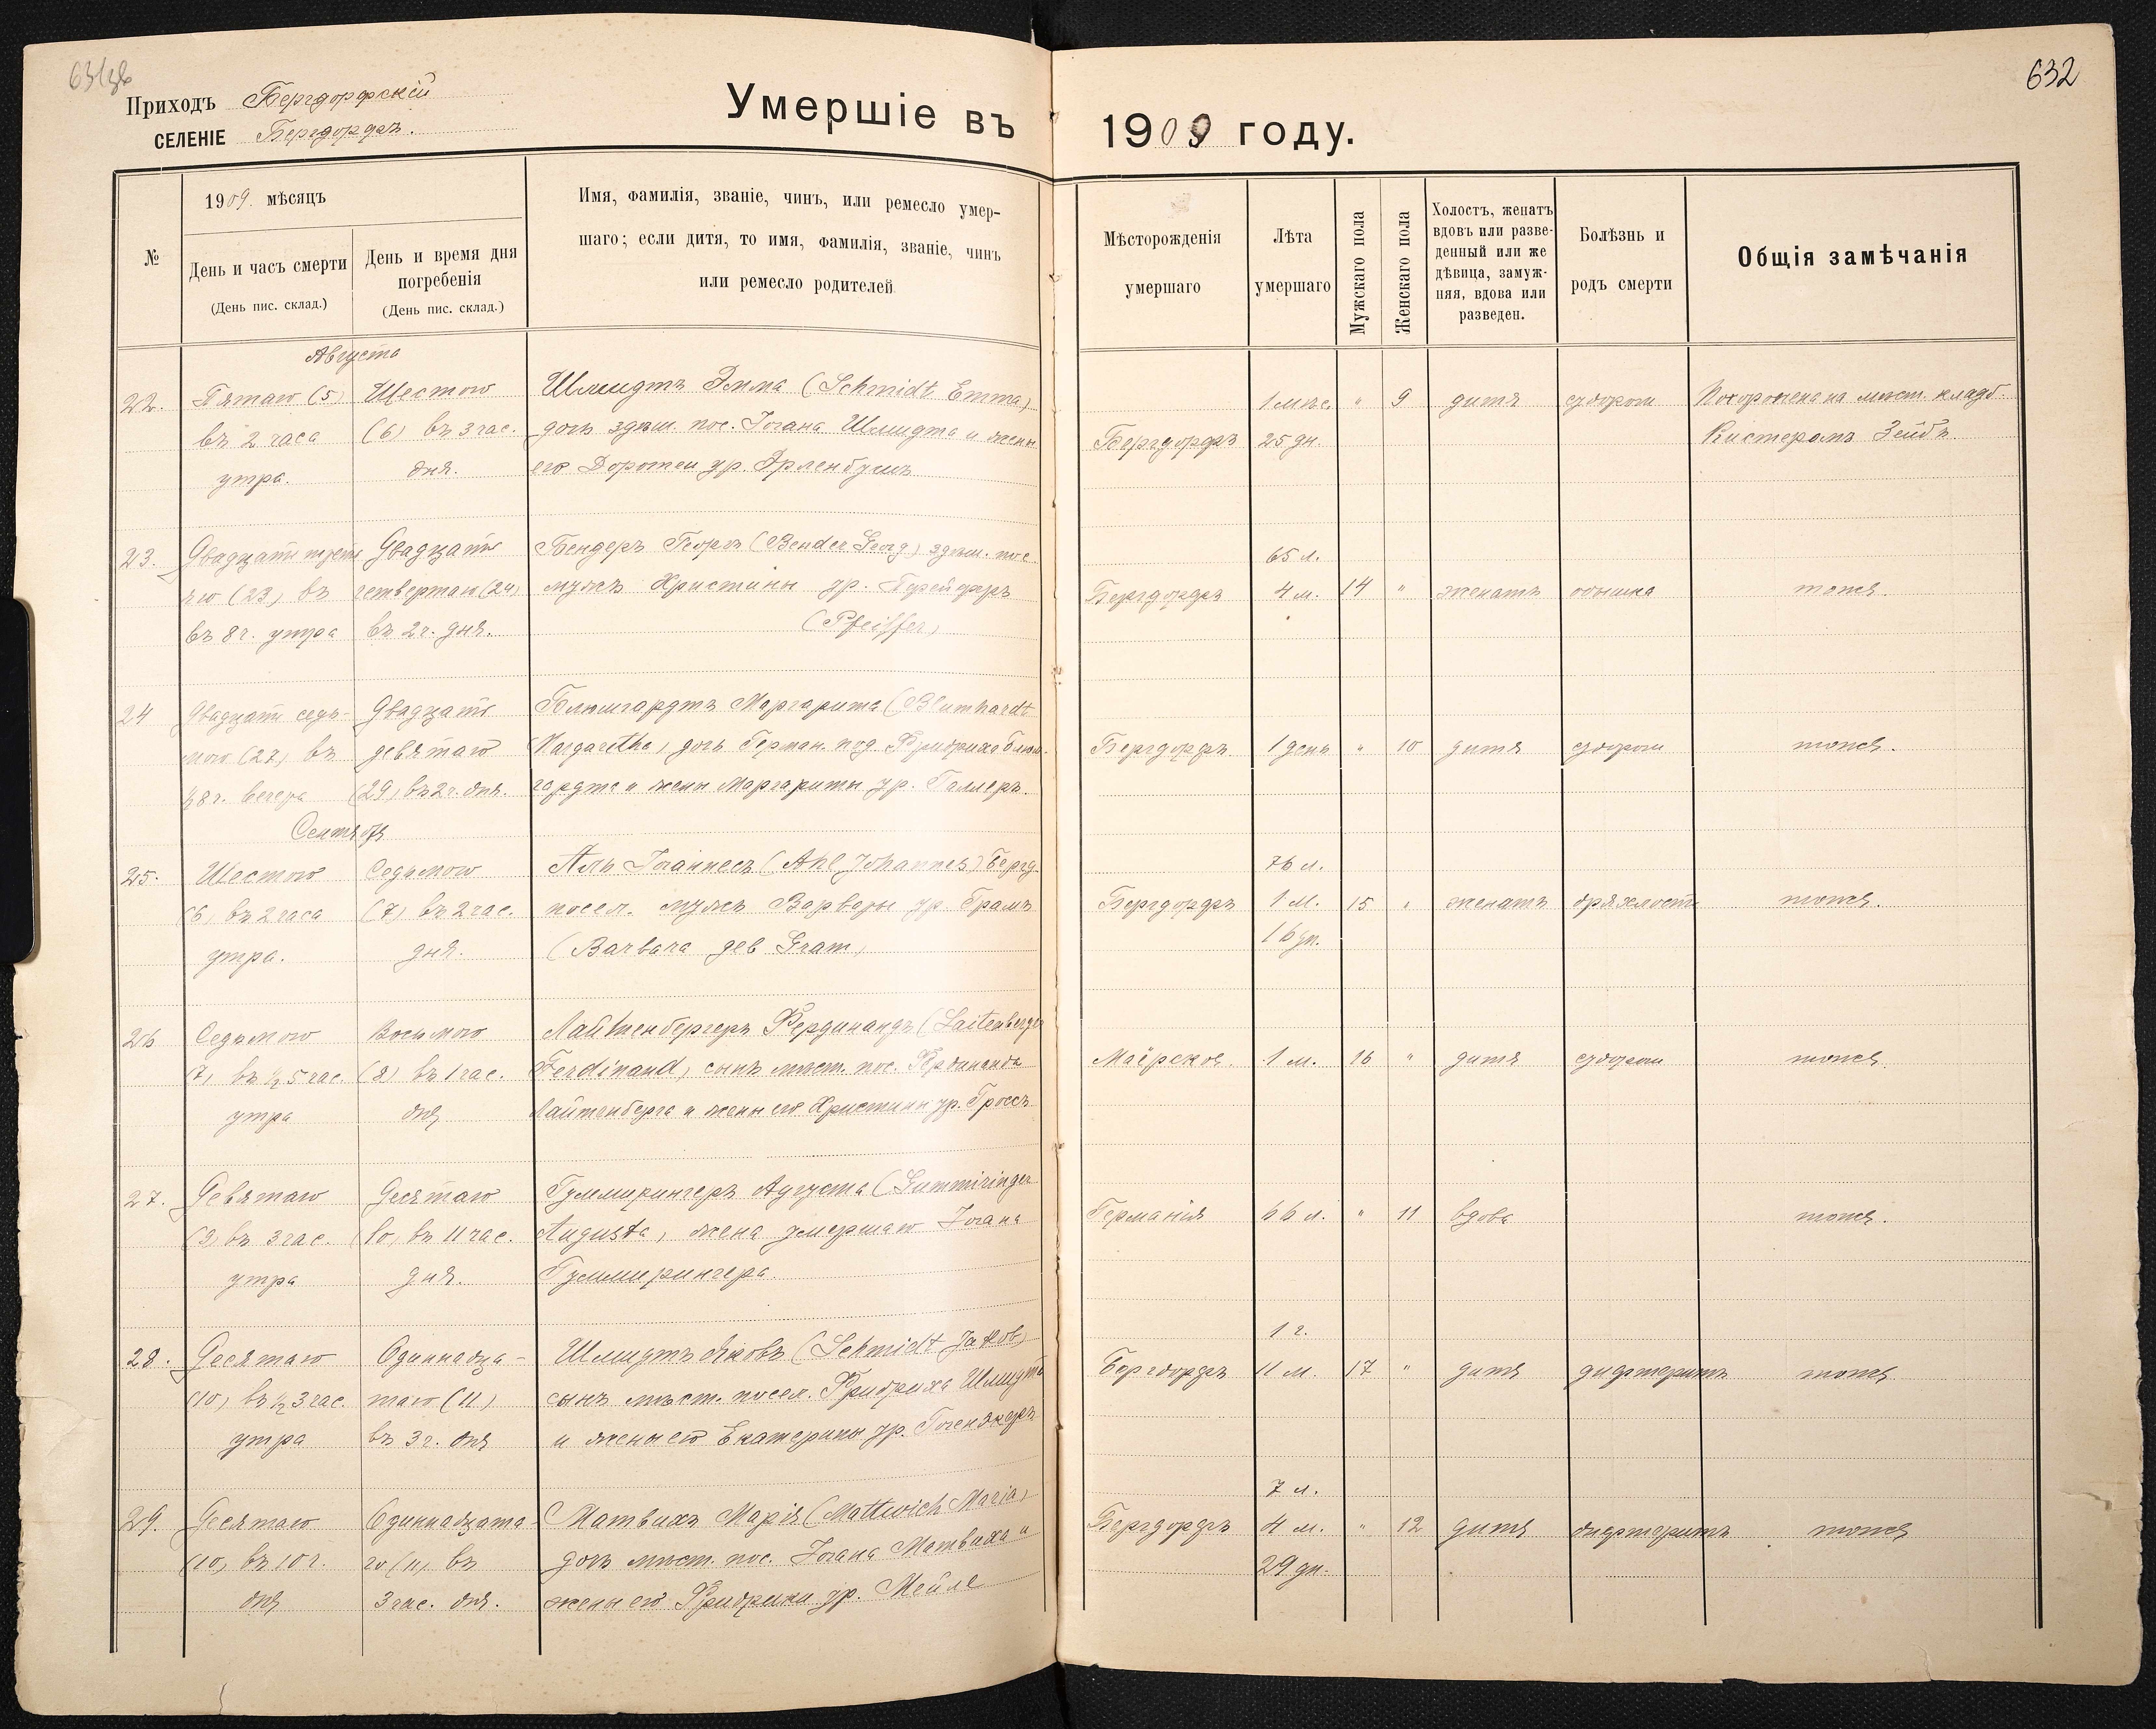 Приходъ Бергдорфскій
СЕЛЕНІЕ Бергдорфъ.
Умершіе въ 1909 году.
632
№
1909. мѣсяцъ
День и часъ смерти
(День пис. склад.)
День и время дня
погребенія
(День пис. склад.)
Имя, фамилія, званіе, чинъ, или ремесло умер-
шаго; если дитя, то имя, фамилія, званіе, чинъ
или ремесло родителей
Мѣсторожденія
умершаго
Лѣта
умершаго
Мужскаго пола
Женскаго пола
Холостъ, женатъ
вдовъ или разве-
денный или же
дѣвица, замуж-
няя, вдова или
разведен.
Болѣзнь и
родъ смерти
Общія замѣчанія
Августа
22.
Пятаго (5)
въ 2 часа
утра.
Шестого
(6) въ 3 час.
дня.
Шмидтъ Эмма (Schmidt Emma)
дочь здѣш. пос. Іогана Шмидта и жены
его Доротеи ур. Эрленбушъ
Бергдорфъ
1 мѣс.
25 дн.
"
9
дитя
судороги
Похоронена на мѣст. кладб.
Кистеромъ Зейбъ.
23.
Двадцать треть
яго (23) въ
въ 8 ч. утра
Двадцать
четвертаго (24)
въ 2 ч. дня.
Бендеръ Георгъ (Bender Georg) здѣш. пос.
мужъ Христины ур. Пфейферъ
(Pfeiffer)
Бергдорфъ
65 л.
4 м.
14
"
женатъ
одышка
тоже.
24
Двадцать седь-
мого (27) въ
½8 ч. вечера
Двадцать
девятаго
(29) въ 2 ч. дня.
Блюмгардтъ Маргарита (Blumhardt
Margarethe) дочь Герман. под. Фридриха Блюм-
гардта и жены Маргариты ур. Галлеръ.
Бергдорфъ
1 день
"
10
дитя
судороги
тоже.
Сентября
25.
Шестого
(6) въ 2 часа
утра.
Седьмого
(7) въ 2 час.
дня.
Аль Іоганнесъ (Ahl Johannes) Бергд.
посел. мужъ Варвары ур. Грамъ
(Barbara geb Gram)
Бергдорфъ
76 л.
1 М.
16 дн.
15
"
женатъ
дряхлость
тоже.
26
Седьмого
(7) въ ½ 5 час.
утра
Восьмого
(8) въ 1 час.
дня
Лайтенбергеръ Фердинандъ (Laitenberger
Ferdinand) сынъ мѣст. пос. Фердинанда
Лайтенберга и жены его Христины ур. Гроссъ
Маёрское.
1 м.
16
"
дитя
судороги
тоже.
27.
Девятаго
(9) въ 3 час.
утра
Десятаго
(10) въ 11 час.
дня.
Гуммирингеръ Августа (Gummiringer
Augusta) жена умершаго Іогана
Гуммирингера.
Германія
66 л.
"
11
вдова
тоже.
28.
Десятаго
(10) въ ½ 3 час.
утра
Одиннадца-
таго (11)
въ 3 ч. дня
Шмидтъ Яковъ (Schmidt Jakob)
сынъ мѣст. посел. Фридриха Шмидта
и жены его Екатерины ур.
Бергдорфъ
1 г.
11 М.
17
"
дитя
дифтеритъ
тоже
29.
Десятаго
(10) въ 10 ч.
дня
Одиннадцата-
го (11) въ
3 час. дня.
Матвихъ Марія (Mattwich Maria)
дочь мѣст. пос. Іогана Матвиха и
жены его Фридрики ур. Мейле
Бергдорфъ
7 л.
4 м.
29 дн.
"
12
дитя
дифтеритъ
тоже